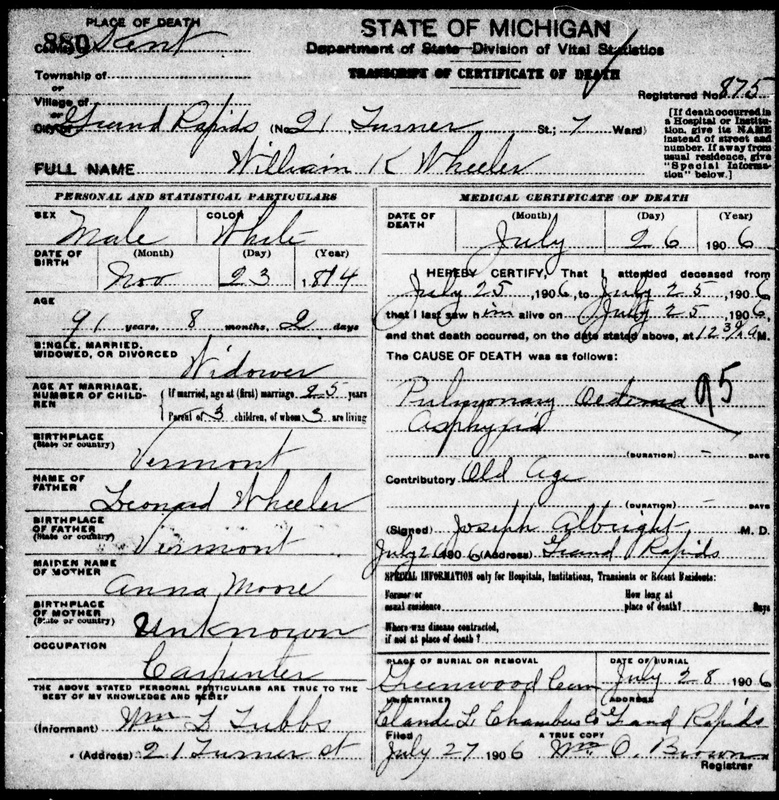 PLACE OF DEATH
880
County of Kent
Township of
or
Village of
or
City of Grand Rapids (No. 21 Turner St; 7 Ward)
STATE OF MICHIGAN
Department of State—Division of Vital Statistics
TRANSCRIPT OF CERTIFICATE OF DEATH
Registered No. 875
[If death occurred in
a Hospital or Institu-
tion, give its NAME
instead of street and
number. If away from
usual residence, give
"Special Informa-
tion" below.]
FULL NAME William K Wheeler
PERSONAL AND STATISTICAL PARTICULARS
SEX Male
COLOR White
DATE OF
BIRTH
(Month) (Day) (Year)
Nov 23, 1814
AGE
91 years, 8 months, 2 days
SINGLE, MARRIED,
WIDOWED, OR DIVORCED
Widower
AGE AT MARRIAGE,
NUMBER OF CHILD-
REN
If married, age at (first) marriage 25 years
Parent of 3 children, of whom 3 are living
BIRTHPLACE
(State or country)
Vermont
NAME OF
FATHER
Leonard Wheeler
BIRTHPLACE
OF FATHER
(State or country)
Vermont
MAIDEN NAME
OF MOTHER
Anna Moore
BIRTHPLACE
OF MOTHER
(State or country)
Unknown
OCCUPATION
Carpenter
THE ABOVE STATED PERSONAL PARTICULARS ARE TRUE TO THE
BEST OF MY KNOWLEDGE AND BELIEF
(Informant) Wm L Tubbs
(Address) 21 Turner st
MEDICAL CERTIFICATE OF DEATH
DATE OF
DEATH
(Month) (Day) (Year)
July 26 1906
I HEREBY CERTIFY, That I attended deceased from
July 25, 1906, to July 25, 1906
that I last saw him alive on July 25, 1906,
and that death occurred, on the date stated above, at 12 30 A M.
The CAUSE OF DEATH was as follows:
Pulmonary Oedema 95
Asphyxia
(DURATION) — DAYS
Contributory Old Age
(DURATION) — DAYS
(Signed) Joseph Albright M. D.
July 26 1906 (Address) Grand Rapids
SPECIAL INFORMATION only for Hospitals, Institutions, Transients or Recent Residents:
Former or
usual residence
How long at
place of death? Days
Where was disease contracted,
if not at place of death?
PLACE OF BURIAL OR REMOVAL
Greenwood Cem
DATE OF BURIAL
July 28 1906
UNDERTAKER
Claude L Chambers Co
ADDRESS
Grand Rapids
Filed
July 27 1906
A TRUE COPY
Wm O. Brown
Registrar